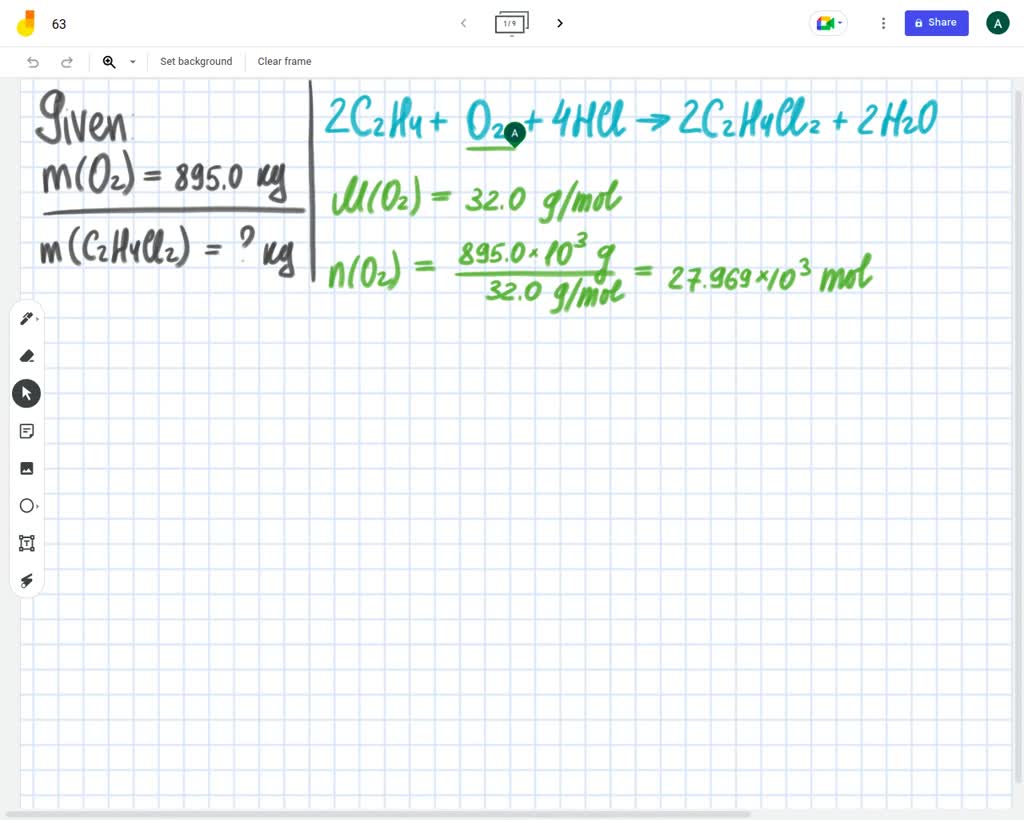 63
1/9
Share
A
Set background
Clear frame
Given:
m(O₂) = 895.0 kg
m(C₂H₄Cl₂) = ? kg
2C₂H₄ + O₂ + 4HCl → 2C₂H₄Cl₂ + 2H₂O
A
M(O₂) = 32.0 g/mol
n(O₂) = 895.0×10³ g / 32.0 g/mol = 27.969×10³ mol
T